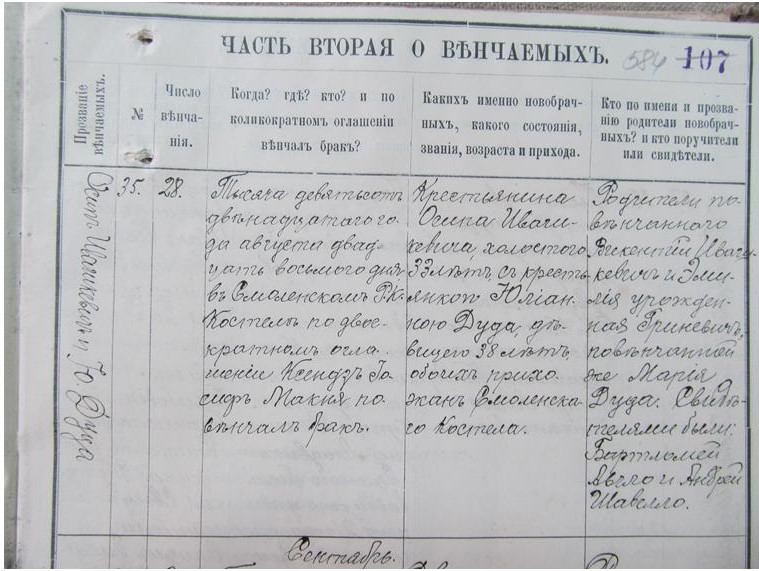 ЧАСТЬ ВТОРАЯ О ВѢНЧАЕМЫХЪ.
584 107
Прозваніе
вѣнчаемыхъ.
№
Число
вѣнча-
нія.
Когда? гдѣ? кто? и по
коликократномъ оглашеніи
вѣнчалъ бракъ?
Какихъ именно новобрач-
ныхъ, какого состоянія,
званія, возраста и прихода.
Кто по имени и прозва-
нію родители новобрач-
ныхъ? и кто поручители
или свидѣтели.
Осипъ Ивашкевичъ и Ю. Дуда
35.
28.
Тысяча девятьсотъ
двѣнадцатаго го-
да августа двад-
цать восьмого дня
въ Смоленскомъ Р.К.
Костелѣ по двое-
кратномъ огла-
шеніи Ксендзъ Іо-
сифъ Макня по-
вѣнчалъ бракъ.
Крестьянина
Осипа Иваш-
кевича, холостого
33 лѣтъ, съ кресть-
янкою Юліан-
ною Дуда, дѣ-
вицею 38 лѣтъ,
обоихъ прихо-
жанъ Смоленска-
го Костела.
Родители по-
вѣнчанного
Викентій Иваш-
кевичъ и Эми-
лія урожден-
ная Гриневичъ,
повѣнчанной
же Марія
Дуда. Свидѣ-
телями были:
Бартломей
и Андрей
Шавелло.
Сентябрь.